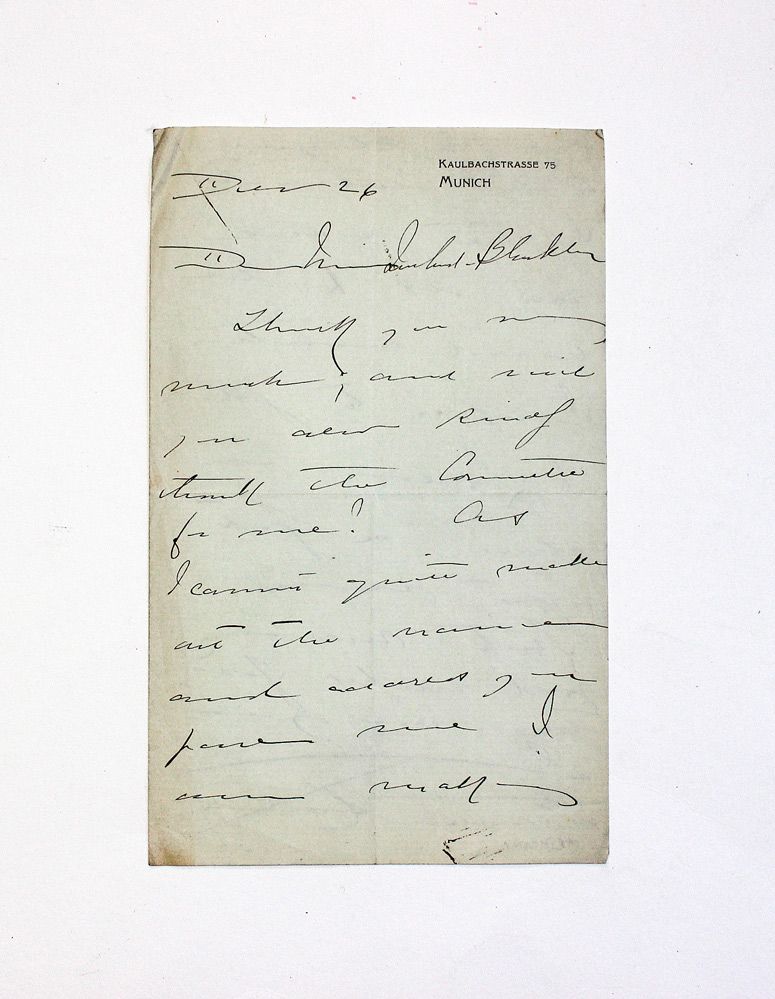 KAULBACHSTRASSE 75
MUNICH
Dec 26
Dear
Thank you very
much; and will
you also kindly
thank the Committee
for me! As
I cannot quite make
out the name
and address you
gave me I
am making